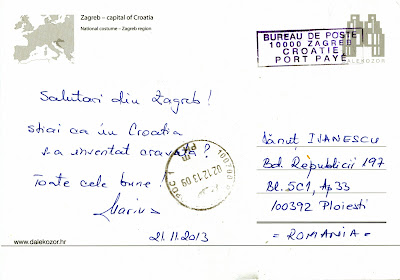 Zagreb – capital of Croatia
National costume – Zagreb region
BUREAU DE POSTE
10000 ZAGREB
CROATIE
PORT PAYÉ
DALEKOZOR
Salutari din Zagreb!
știai ca în Croatia
s-a inventat cravata?
Toate cele bune.
Marius
21.11.2013
Dănuț IVĂNESCU
Bd. Republicii 197
Bl. 5C1, Ap. 33
100392 Ploiești
- ROMANIA -
02 12 13 09
www.dalekozor.hr